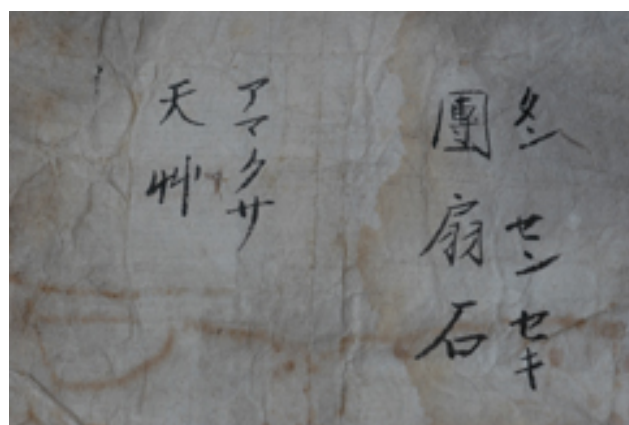 タン センセキ
團扇石
アマクサ
天艸